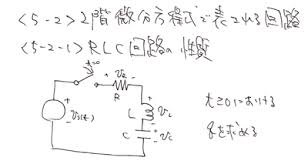 <5-2> 2階微分方程式で表される回路
<5-2-1> RLC回路の性質
t=0
+ vR -
R
+
vs(t)
-
L
+
vL
-
C
+
vC
-
t≥0における
qを求める